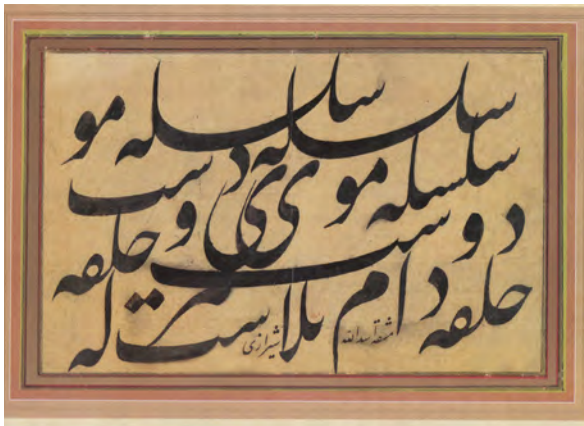 سلسله سلسله مو
سلسله موی دوست
دوست حلقه
حلقه دام بلاست له
مشقه اسدالله شیرازی